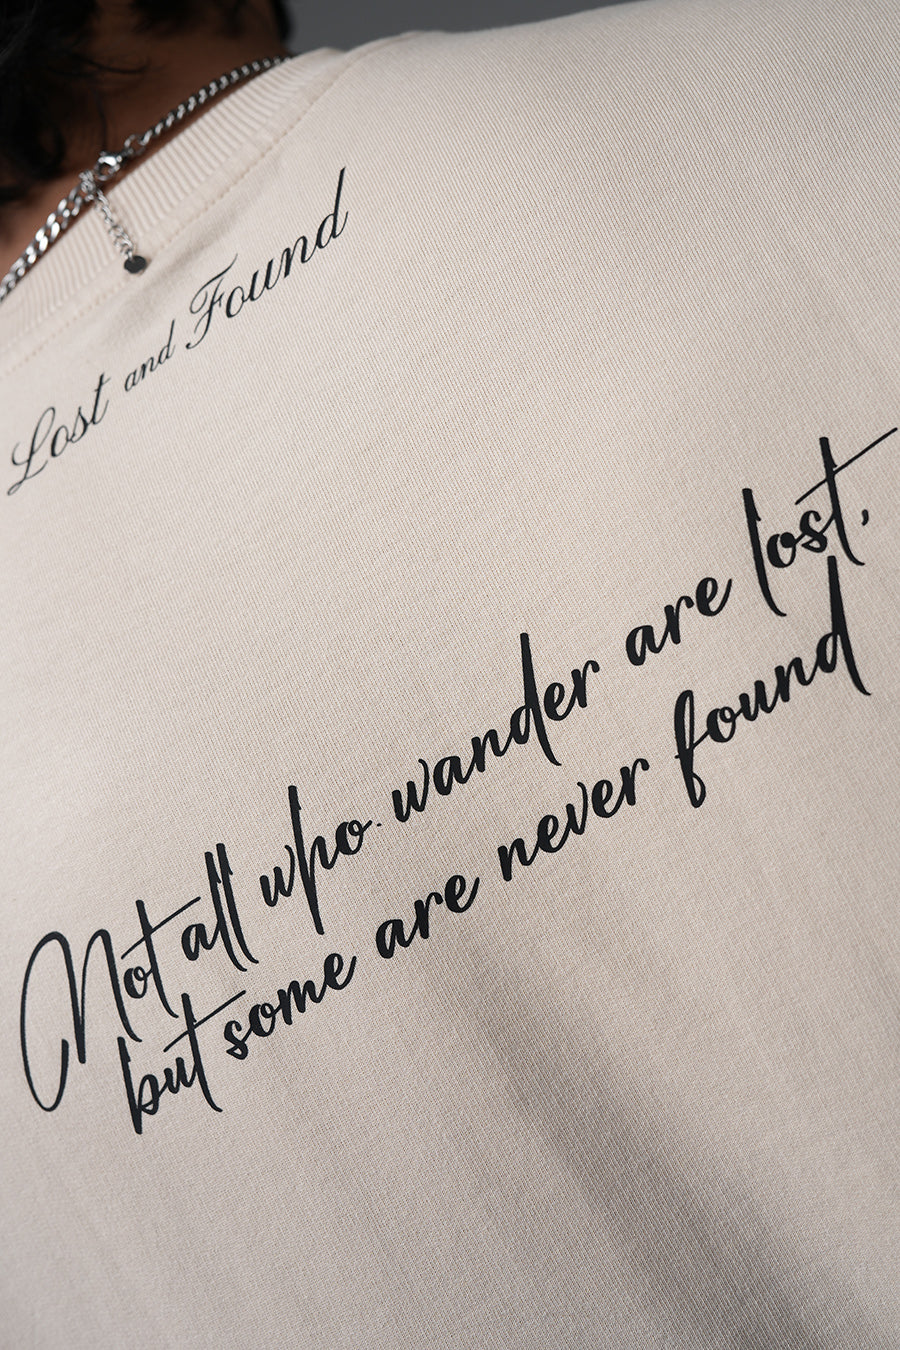 Lost and Found
Not all who wander are lost,
but some are never found